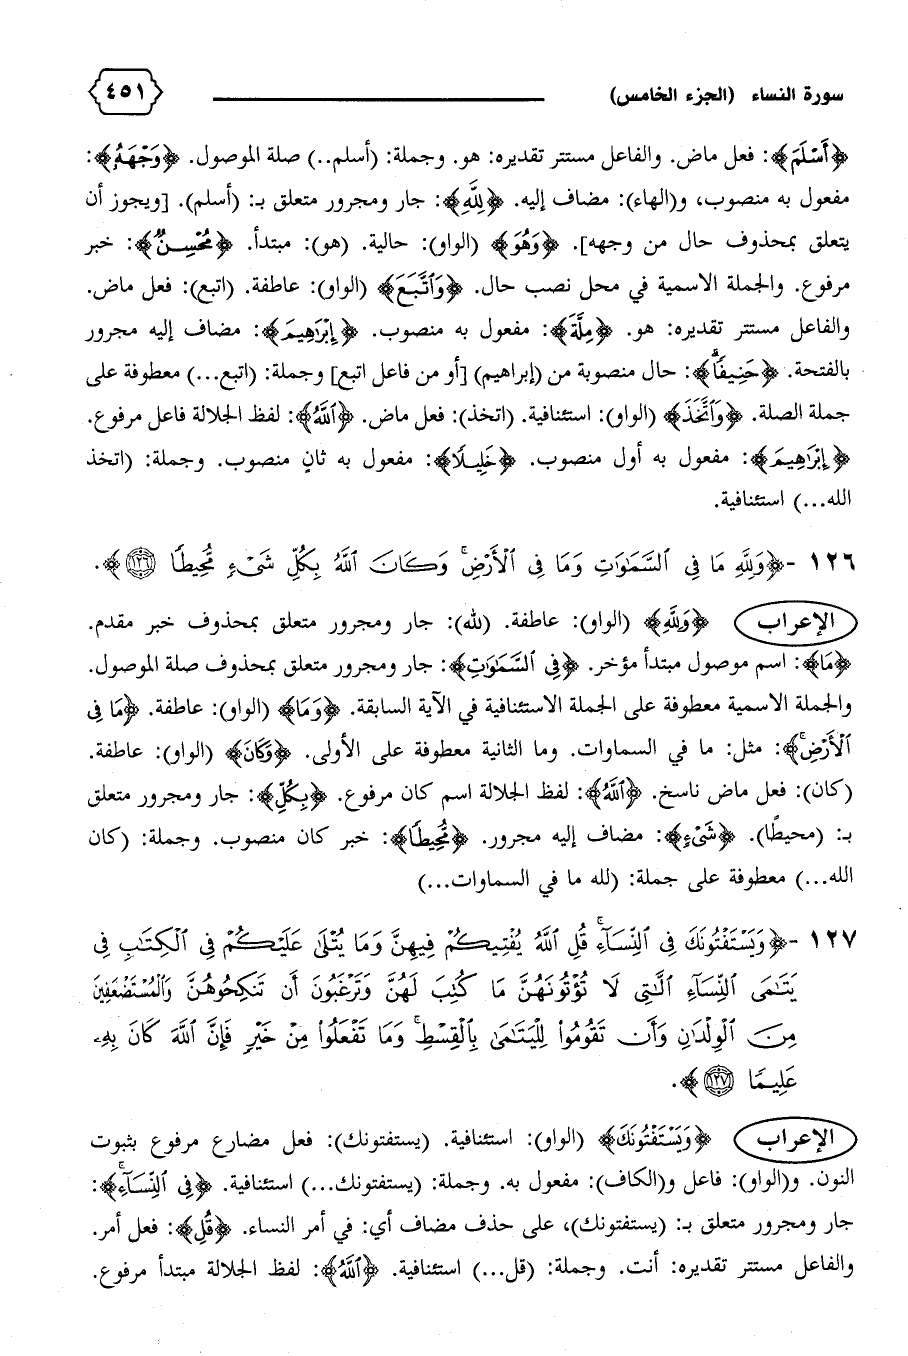 سورة النساء (الجزء الخامس) ٤٥١
﴿أَسْلَمَ﴾: فعل ماض. والفاعل مستتر تقديره: هو. وجملة: (أسلم..) صلة الموصول. ﴿وَجْهَهُۥ﴾:
مفعول به منصوب، و(الهاء): مضاف إليه. ﴿لِلَّهِ﴾: جار ومجرور متعلق بـ: (أسلم). [ويجوز أن
يتعلق بمحذوف حال من وجهه]. ﴿وَهُوَ﴾ (الواو): حالية. (هو): مبتدأ. ﴿مُحْسِنٌ﴾: خبر
مرفوع. والجملة الاسمية في محل نصب حال. ﴿وَٱتَّبَعَ﴾ (الواو): عاطفة. (اتبع): فعل ماض.
والفاعل مستتر تقديره: هو. ﴿مِلَّةَ﴾: مفعول به منصوب. ﴿إِبْرَٰهِيمَ﴾: مضاف إليه مجرور
بالفتحة. ﴿حَنِيفًا ۗ﴾: حال منصوبة من (إبراهيم) [أو من فاعل اتبع] وجملة: (اتبع...) معطوفة على
جملة الصلة. ﴿وَٱتَّخَذَ﴾ (الواو): استئنافية. (اتخذ): فعل ماض. ﴿ٱللَّهُ﴾: لفظ الجلالة فاعل مرفوع.
﴿إِبْرَٰهِيمَ﴾: مفعول به أول منصوب. ﴿خَلِيلًا﴾: مفعول به ثانٍ منصوب. وجملة: (اتخذ
الله...) استئنافية.
١٢٦ -﴿وَلِلَّهِ مَا فِى ٱلسَّمَٰوَٰتِ وَمَا فِى ٱلْأَرْضِ ۚ وَكَانَ ٱللَّهُ بِكُلِّ شَىْءٍ مُّحِيطًا ١٢٦﴾.
الإعراب ﴿وَلِلَّهِ﴾ (الواو): عاطفة. (لله): جار ومجرور متعلق بمحذوف خبر مقدم.
﴿مَا﴾: اسم موصول مبتدأ مؤخر. ﴿فِى ٱلسَّمَٰوَٰتِ﴾: جار ومجرور متعلق بمحذوف صلة الموصول.
والجملة الاسمية معطوفة على الجملة الاستئنافية في الآية السابقة. ﴿وَمَا﴾ (الواو): عاطفة. ﴿مَا فِى
ٱلْأَرْضِ ۚ﴾: مثل: ما في السماوات. وما الثانية معطوفة على الأولى. ﴿وَكَانَ﴾ (الواو): عاطفة.
(كان): فعل ماض ناسخ. ﴿ٱللَّهُ﴾: لفظ الجلالة اسم كان مرفوع. ﴿بِكُلِّ﴾: جار ومجرور متعلق
بـ: (محيطًا). ﴿شَىْءٍ﴾: مضاف إليه مجرور. ﴿مُّحِيطًا﴾: خبر كان منصوب. وجملة: (كان
الله...) معطوفة على جملة: (لله ما في السماوات...)
١٢٧ -﴿وَيَسْتَفْتُونَكَ فِى ٱلنِّسَآءِ ۖ قُلِ ٱللَّهُ يُفْتِيكُمْ فِيهِنَّ وَمَا يُتْلَىٰ عَلَيْكُمْ فِى ٱلْكِتَٰبِ فِى
يَتَٰمَى ٱلنِّسَآءِ ٱلَّٰتِى لَا تُؤْتُونَهُنَّ مَا كُتِبَ لَهُنَّ وَتَرْغَبُونَ أَن تَنكِحُوهُنَّ وَٱلْمُسْتَضْعَفِينَ
مِنَ ٱلْوِلْدَٰنِ وَأَن تَقُومُوا۟ لِلْيَتَٰمَىٰ بِٱلْقِسْطِ ۚ وَمَا تَفْعَلُوا۟ مِنْ خَيْرٍ فَإِنَّ ٱللَّهَ كَانَ بِهِۦ
عَلِيمًا ١٢٧﴾.
الإعراب ﴿وَيَسْتَفْتُونَكَ﴾ (الواو): استئنافية. (يستفتونك): فعل مضارع مرفوع بثبوت
النون. و(الواو): فاعل و(الكاف): مفعول به. وجملة: (يستفتونك...) استئنافية. ﴿فِى ٱلنِّسَآءِ ۖ﴾:
جار ومجرور متعلق بـ: (يستفتونك)، على حذف مضاف أي: في أمر النساء. ﴿قُلِ﴾: فعل أمر.
والفاعل مستتر تقديره: أنت. وجملة: (قل...) استئنافية. ﴿ٱللَّهُ﴾: لفظ الجلالة مبتدأ مرفوع.